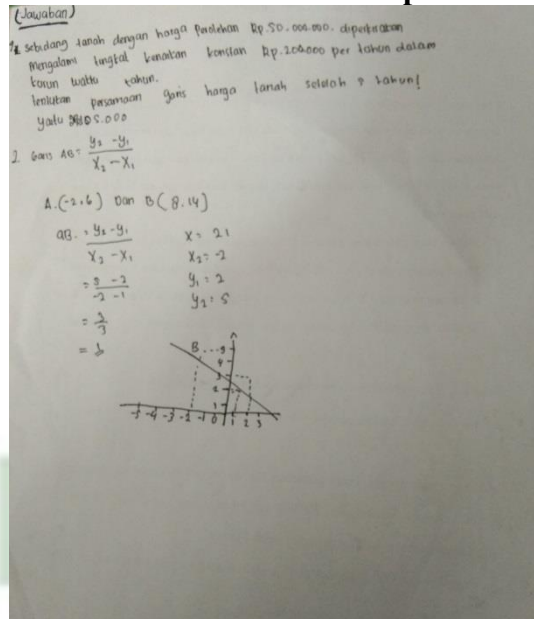 (Jawaban)
1. sebidang tanah dengan harga perolehan Rp.50.000.000. diperkirakan
mengalami tingkat kenaikan konstan Rp.200.000 per tahun dalam
kurun waktu tahun.
tentukan persamaan garis harga tanah setelah 9 tahun!
yaitu
2. Garis AB = y₂ - y₁
x₂ - x₁
A.(-2,6) Dan B(8,14)
AB. = y₂ - y₁ x = 21
x₂ - x₁ x₂ = -2
= 5 - 2 y₁ = 2
-2 - 1 y₂ = 5
= 3
3
=
B 5
4
3
2
1
-5 -4 -3 -2 -1 0 1 2 3